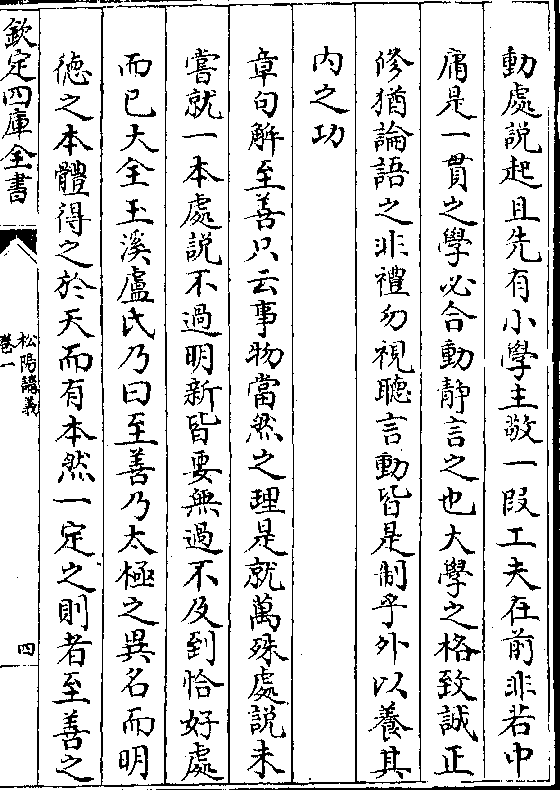 動處説起且先有小學主敬一段工夫在前非若中
庸是一貫之學必合動靜言之也大學之格致誠正
修猶論語之非禮勿視聽言動皆是制乎外以養其
内之功
章句解至善只云事物當然之理是就萬殊處説未
嘗就一本處説不過明新皆要無過不及到恰好處
而已大全玉溪盧氏乃曰至善乃太極之異名而明
德之本體得之於天而有本然一定之則者至善之
欽定四庫全書
松陽講義
卷一
四